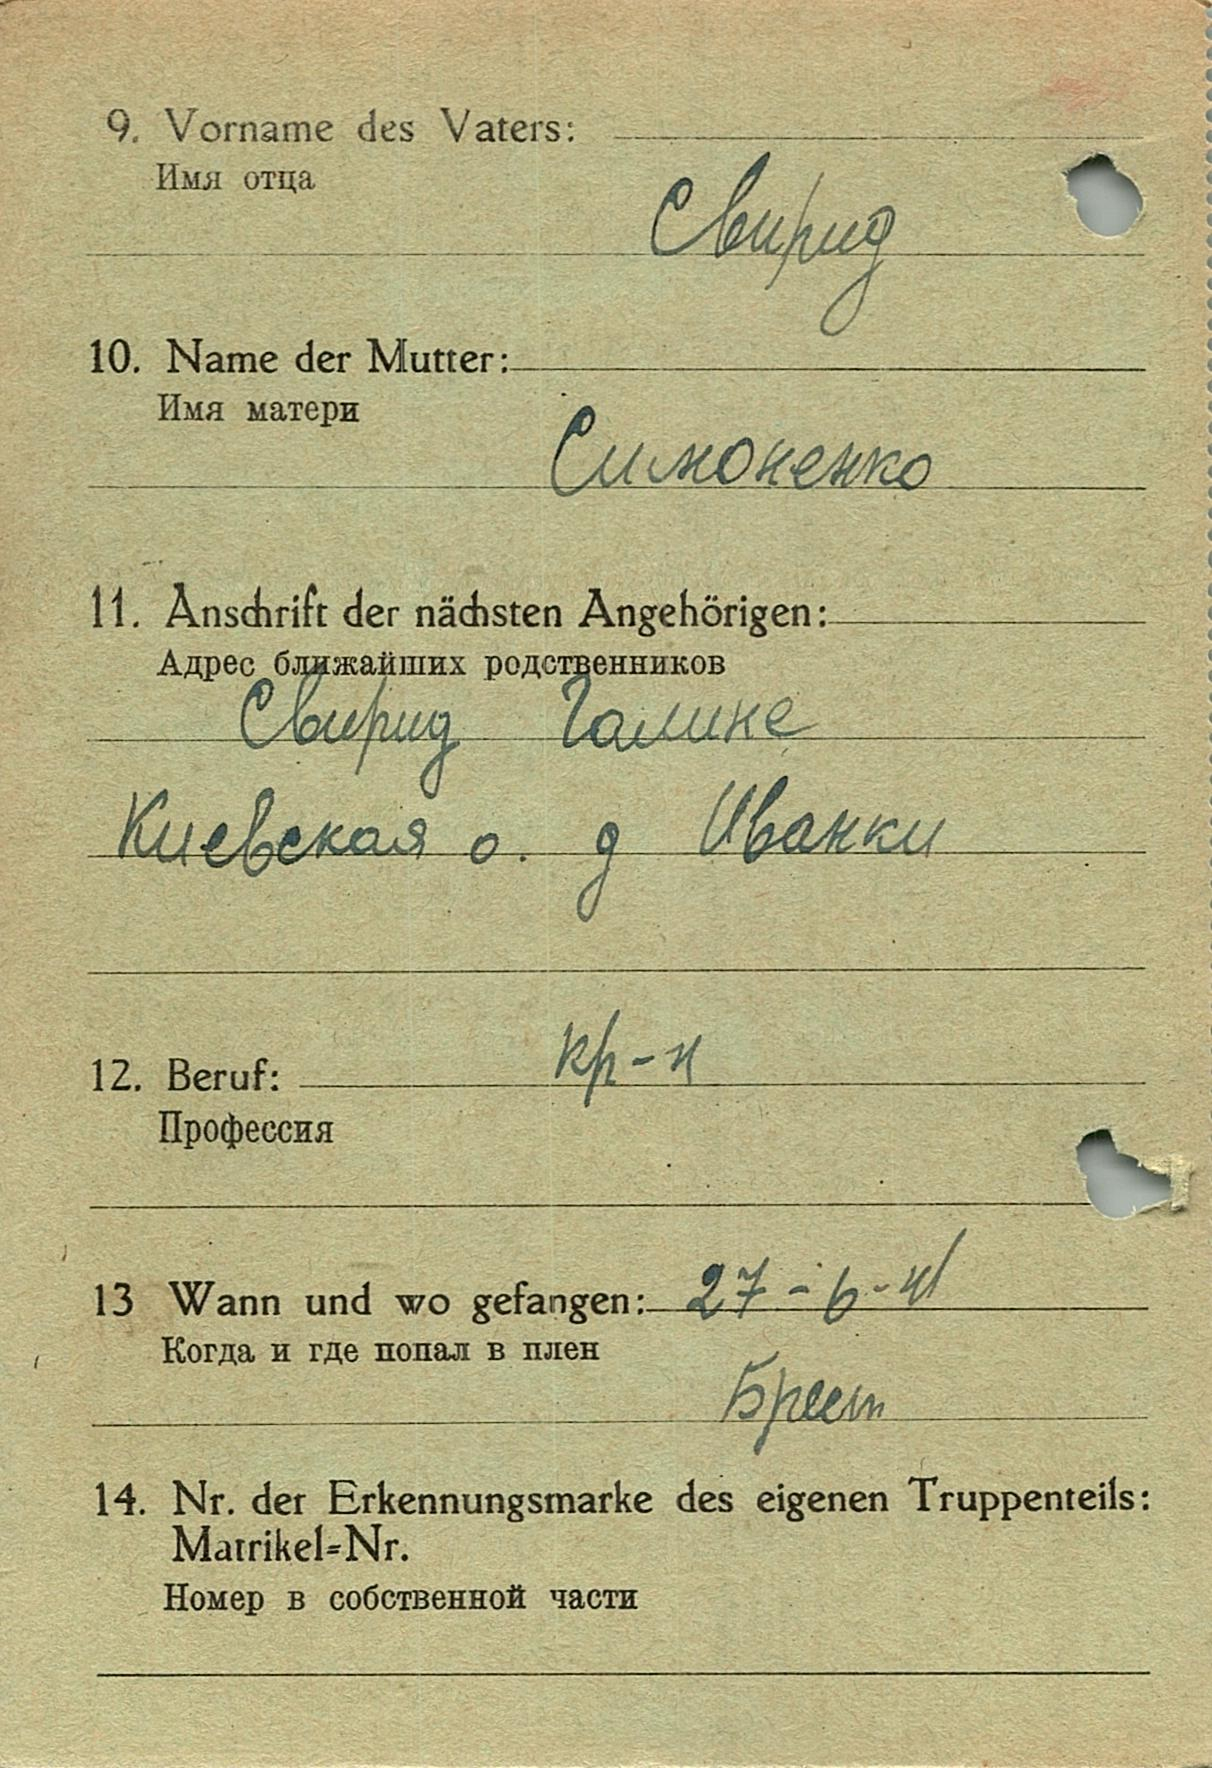 9. Vorname des Vaters:
Имя отца
Свирид
10. Name der Mutter:
Имя матери
Симоненко
11. Anschrift der nächsten Angehörigen:
Адрес ближайших родственников
Свирид Галине
Киевская о. д Иванки
12. Beruf: кр-н
Профессия
13 Wann und wo gefangen: 27-6-41
Когда и где попал в плен
Брест
14. Nr. der Erkennungsmarke des eigenen Truppenteils:
Matrikel-Nr.
Номер в собственной части